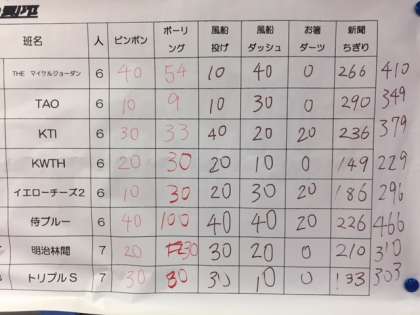 班名 人 ピンポン ボーリング 風船投げ 風船ダッシュ お箸ダーツ 新聞ちぎり
THE マイケルジョーダン 6 40 54 10 40 0 266 410
TAO 6 10 9 10 30 0 290 349
KTI 6 30 33 40 20 20 236 379
KWTH 6 20 30 20 10 0 149 229
イエローチーズ2 6 10 30 20 30 20 186 296
侍ブルー 6 40 100 40 40 20 226 466
明治林間 7 20 30 30 20 0 210 310
トリプルS 7 30 80 30 10 0 133 303